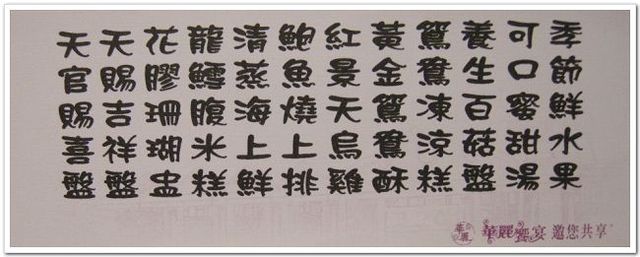 天官賜喜盤
天賜吉祥盤
花膠珊瑚盅
龍鱈腹米糕
清蒸海上鮮
鮑魚燒上排
紅景天烏雞
黃金鴛鴦酥
鴛鴦凍涼糕
養生百菇盤
可口蜜甜湯
季節鮮水果
華麗 華麗饗宴 邀您共享